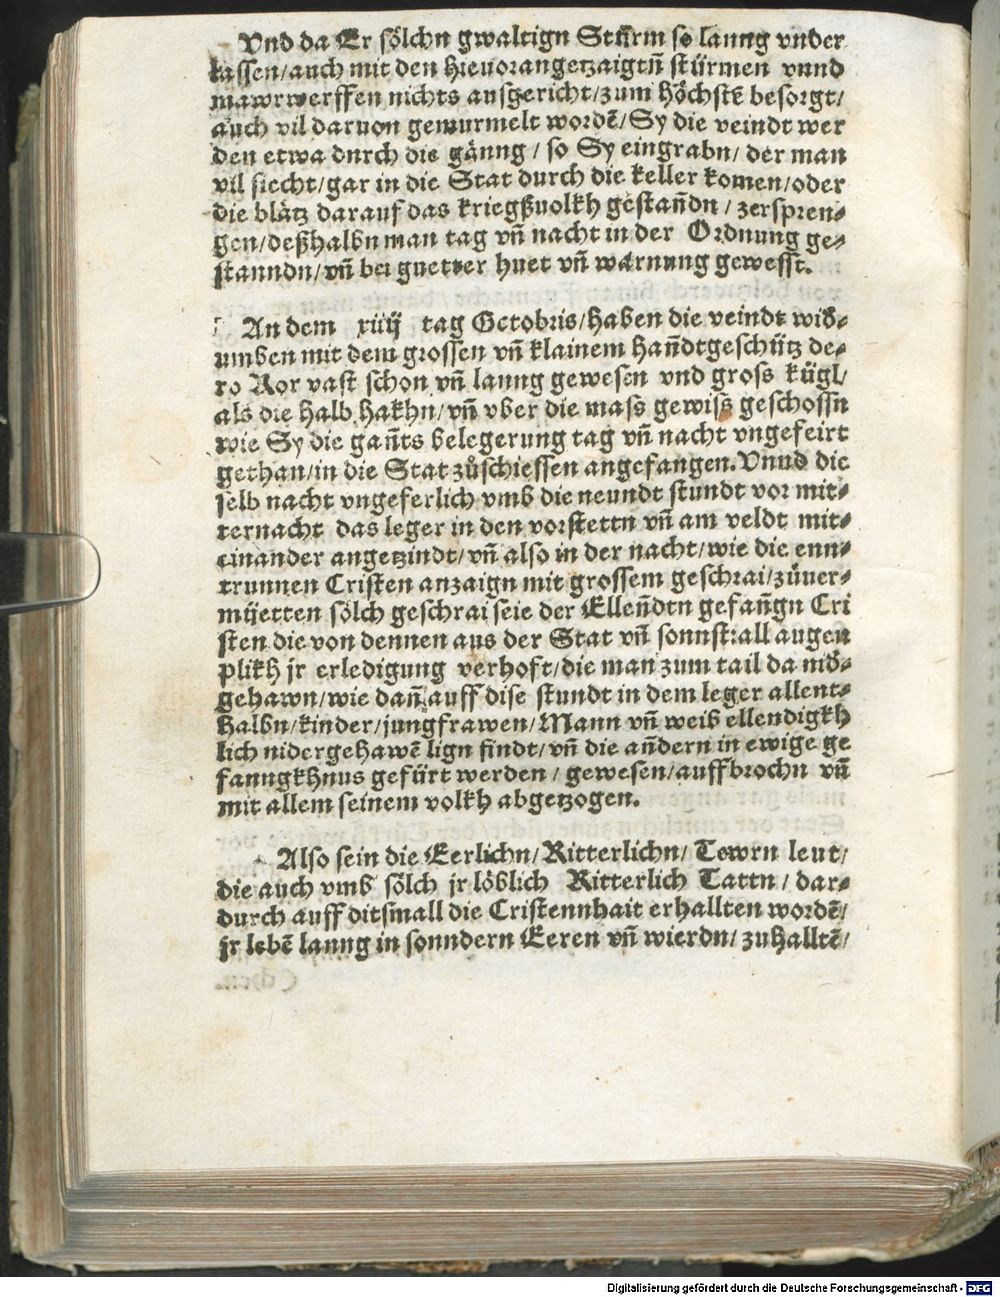 Vnd da Er sölchn gwaltign Stürm so lanng vnder
lassen/auch mit den hieuorangetzaigtñ stürmen vnnd
mawrwerffen nichts ausgericht/zum höchstē besorgt/
auch vil daruon gemurmelt wordē/Sy die veindt wer
den etwa durch die gänng / so Sy eingrabn/ der man
vil siecht/gar in die Stat durch die keller komen/oder
die blätz darauf das kriegßuolkh gestañdn / zerspren⸗
gen/deßhalbn man tag vñ nacht in der Ordnung ge⸗
stanndn/vñ bei guetter huet vñ warnung gewesst.
An dem xiiij tag Octobris/haben die veindt wid⸗
umben mit dem grossen vñ klainem hañdtgeschütz de⸗
ro Ror vast schon vñ lanng gewesen vnd gross kügl/
als die halb hakhn/vñ vber die mass gewiss geschossn
wie Sy die gañts belegerung tag vñ nacht vngefeirt
gethan/in die Stat zůschiessen angefangen.Vnnd die
selb nacht vngeferlich vmb die neundt stundt vor mit⸗
ternacht das leger in den vorstettn vñ am veldt mit⸗
einander angetzindt/vñ also in der nacht/wie die enn⸗
trunnen Cristen anzaign mit grossem geschrai/zůuer⸗
müetten sölch geschrai seie der Elleñdtn gefañgn Cri
sten die von dennen aus der Stat vñ sonnst all augen
plikh jr erledigung verhoft/die man zum tail da nid⸗
gehawn/wie dañ auff dise stundt in dem leger allent⸗
halbn/kinder/jungfrawen/Mann vñ weib ellendigkh
lich nidergehawē lign findt/vñ die añdern in ewige ge
fanngkhnus gefürt werden / gewesen/auffbrochn vñ
mit allem seinem volkh abgetzogen.
Also sein die Eerlichn/Ritterlichn/ Tewrn leut/
die auch vmb sölch jr löblich Ritterlich Tattn / dar⸗
durch auff ditsmall die Cristennhait erhallten wordē/
jr lebē lanng in sonndern Eeren vñ wierdn/ zuhalltē/
Digitalisierung gefördert durch die Deutsche Forschungsgemeinschaft - DFG